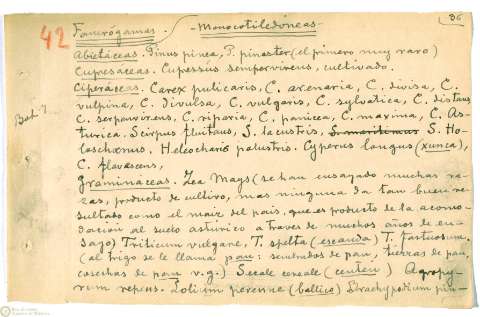 36
42 Fanerógamas. - Monocotiledóneas -
Abietáceas. Pinus pinea, P. pinaster (el primero muy raro)
Cupresáceas. Cupessus sempervirens, cultivado.
Ciperáceas. Carex pulicaris, C. arenaria, C. divisa, C.
vulpina, C. divulsa, C. vulgaris, C. sylvatica, C. distans
C. serpanvirens, C. riparia, C. panicea, C. maxima, C. As-
turica. Scirpus fluitans, S. lacustris, S. maritimus S. Ho-
loschænus. Heleocharis palustris. Cyperus longus (xunca),
C. flavescens,
Gramináceas. Zea Mays (se han ensayado muchas ra-
zas, producto de cultivo, mas ninguna da tan buen re-
sultado como el maiz del pais, que es producto de la acomo-
dacion al suelo astúrico a traves de muchos años de en-
sayo) Triticum vulgare, T. spelta (escanda) T. fastuosum.
(al trigo se le llama pan: sembrados de pan, tierras de pan,
cosechas de pan v.g.) Secale cereale (centen) Agropy-
rum repens. Lolium perenne (ballico) Brachypodium pin-